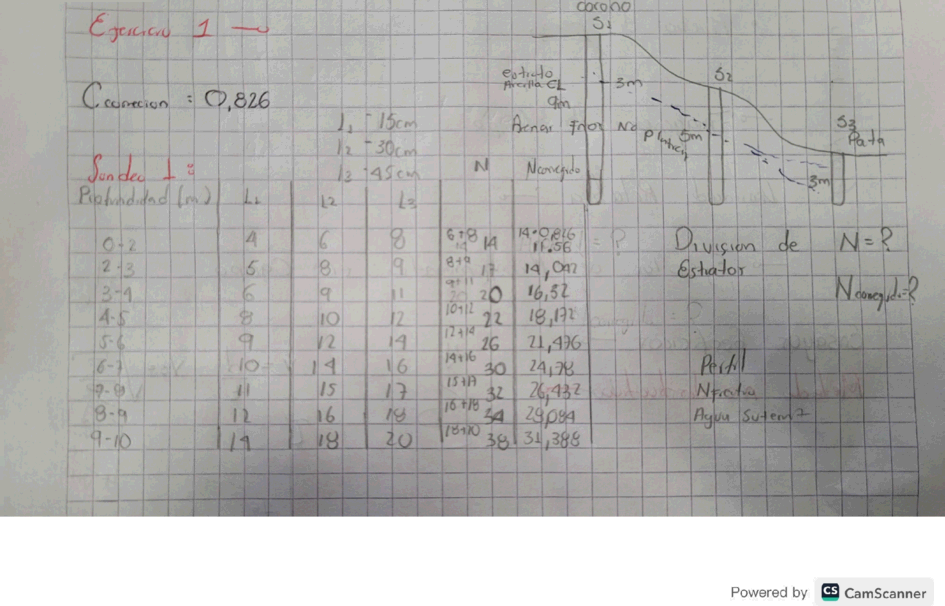 Ejercicio 1
Corona
S1
Ccorrecion = 0,826
L1 - 15cm
L2 - 30cm
L3 - 45cm
estrato
Arcilla CL
9m
3m
S2
Arenas Finos No Plastico
5m
S3
Pata
3m
Sondeo 1 :
Profundidad (m) L1 L2 L3 N Ncorregido
0-2 4 6 8 6+8 14 14·0,816 11.56 = ?
2-3 5 8 9 8+9 17 14,042
3-4 6 9 11 9+11 20 16,52
4-5 8 10 12 10+12 22 18,172
5-6 9 12 14 12+14 26 21,476
6-7 10 14 16 14+16 30 24,78
7-8 11 15 17 15+17 32 26,432
8-9 12 16 18 16+18 34 28,084
9-10 14 18 20 18+20 38 31,388
Division de
Estratos
N = ?
Ncorregido = ?
Perfil
Nfreatico
Agua
Powered by CS CamScanner